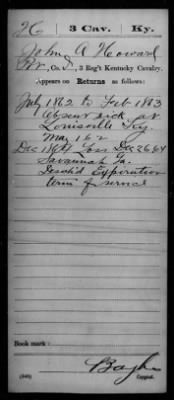 H | 3 Cav. | Ky.
John A Howard
Co. 3 Reg't Kentucky Cavalry.
Appears on Returns as follows:
July 1862 to Feb 1863
Absent sick at
Louisville Ky.
May 1862
Dec 1864 Loss Dec 26 64
Savannah Ga.
Disch'd Expiration
term of service
Book mark:
(546)
Copyist.